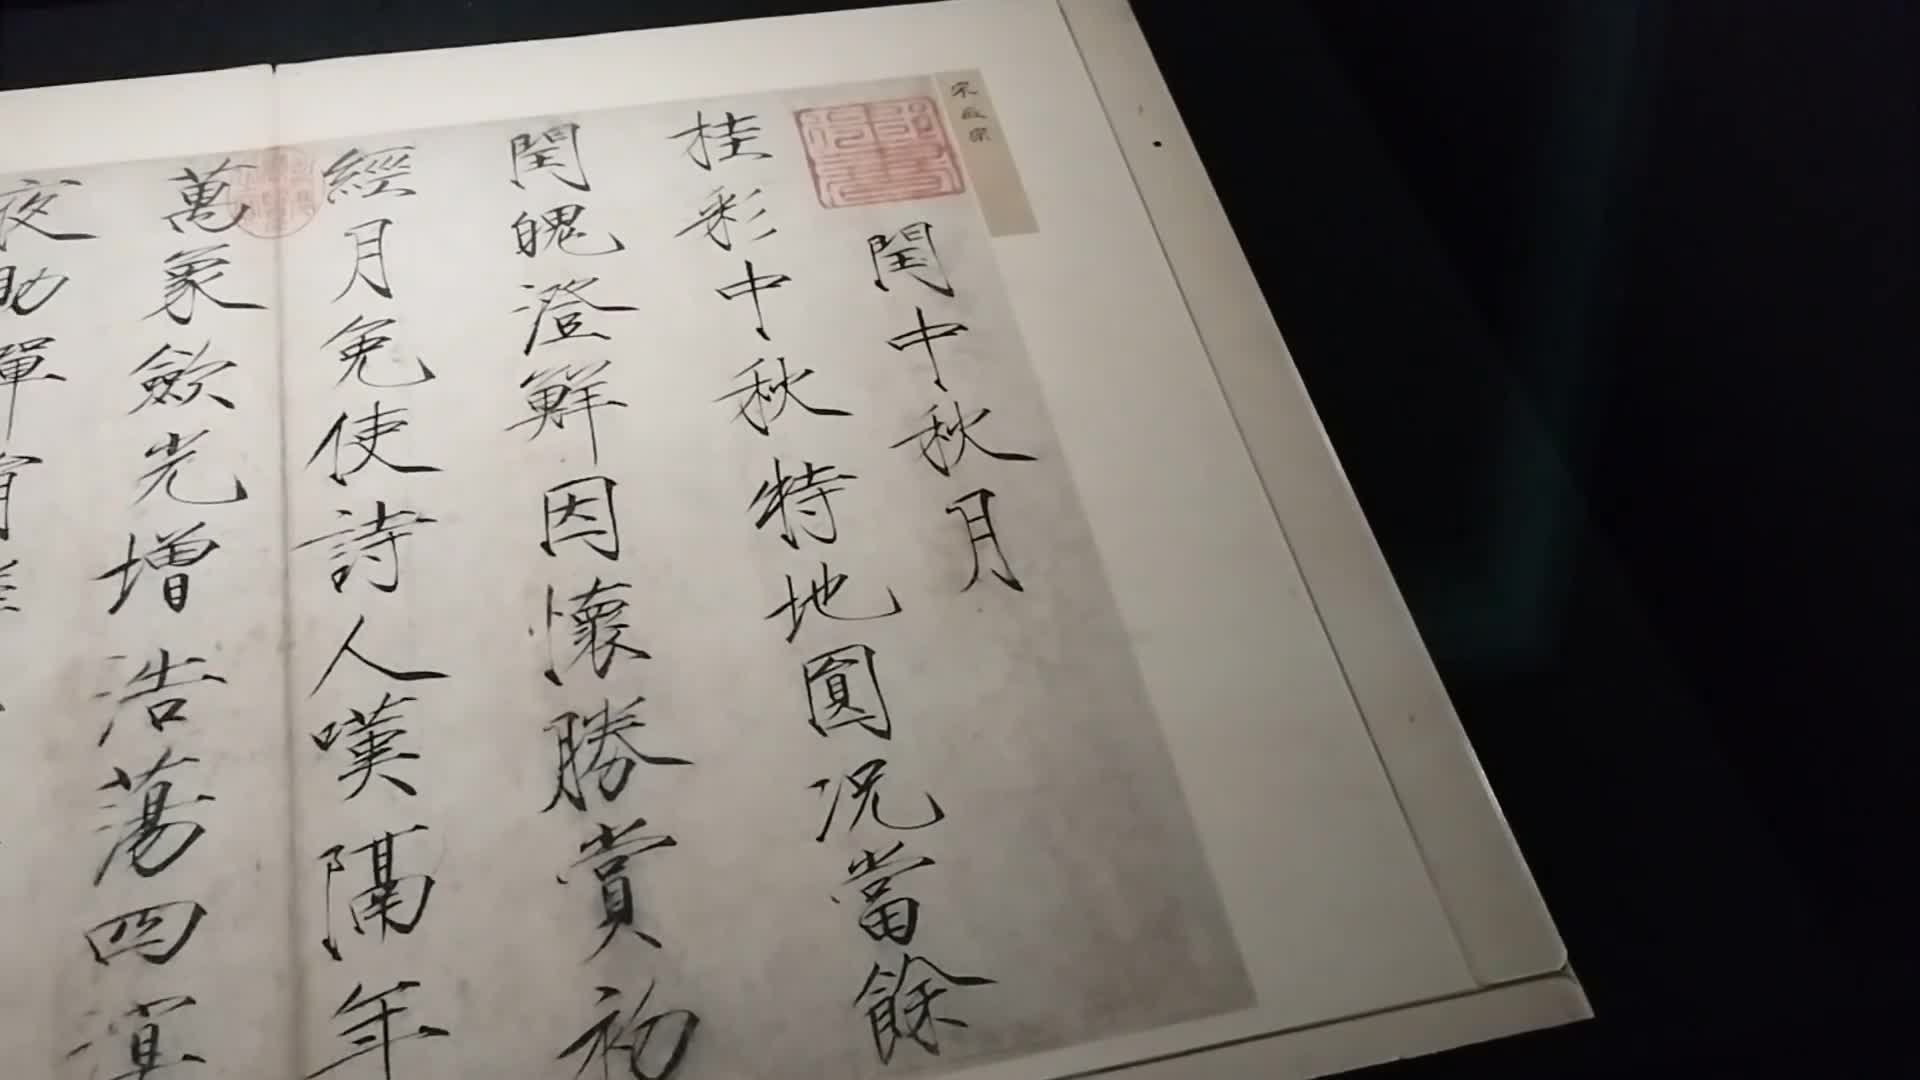 宋徽宗
閏中秋月
桂彩中秋特地圓況當餘
閏魄澄鮮因懷勝賞初
經月免使詩人嘆隔年
萬象斂光增浩蕩四溟
夜助嬋